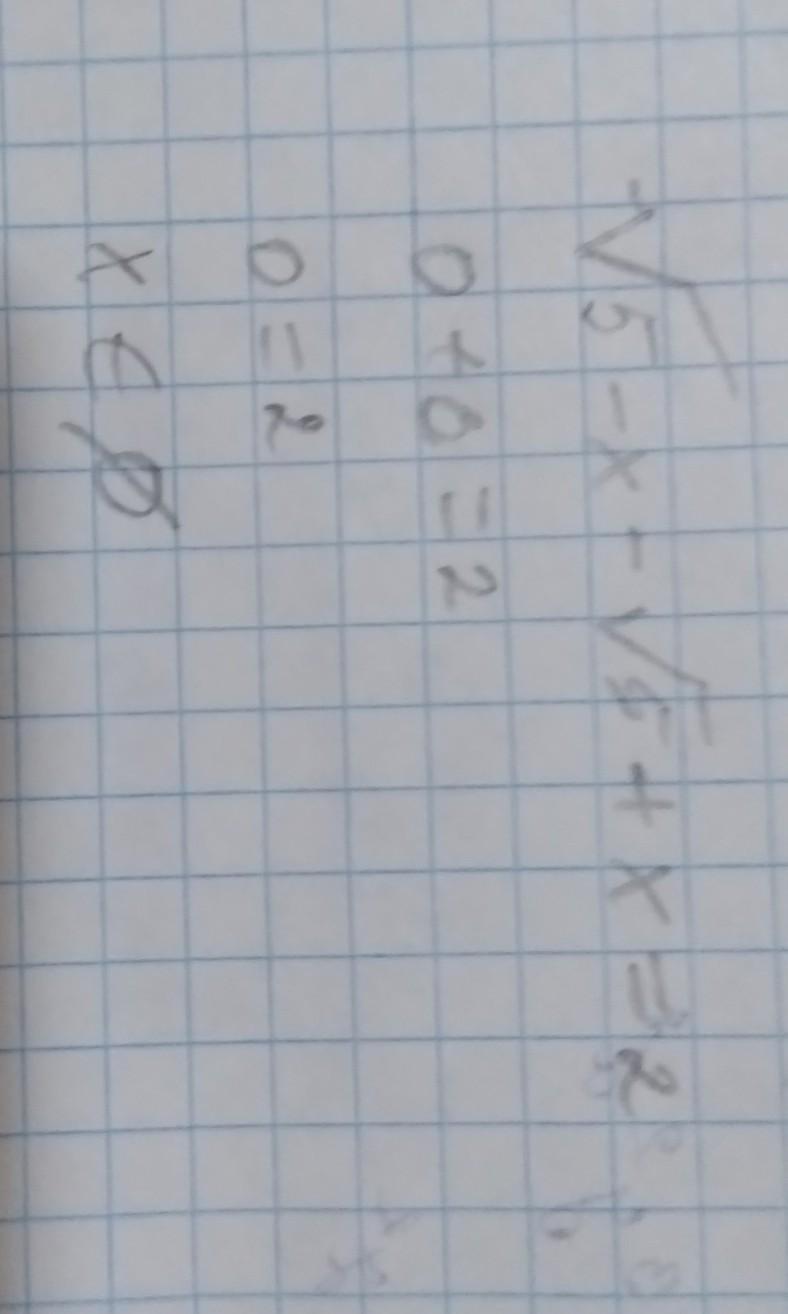 √5 - x - √5 + x = 2
0 + 0 = 2
0 = 2
x ∈ ∅